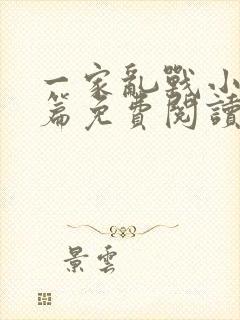 一家亂戰小
篇免費閱讀
景雲